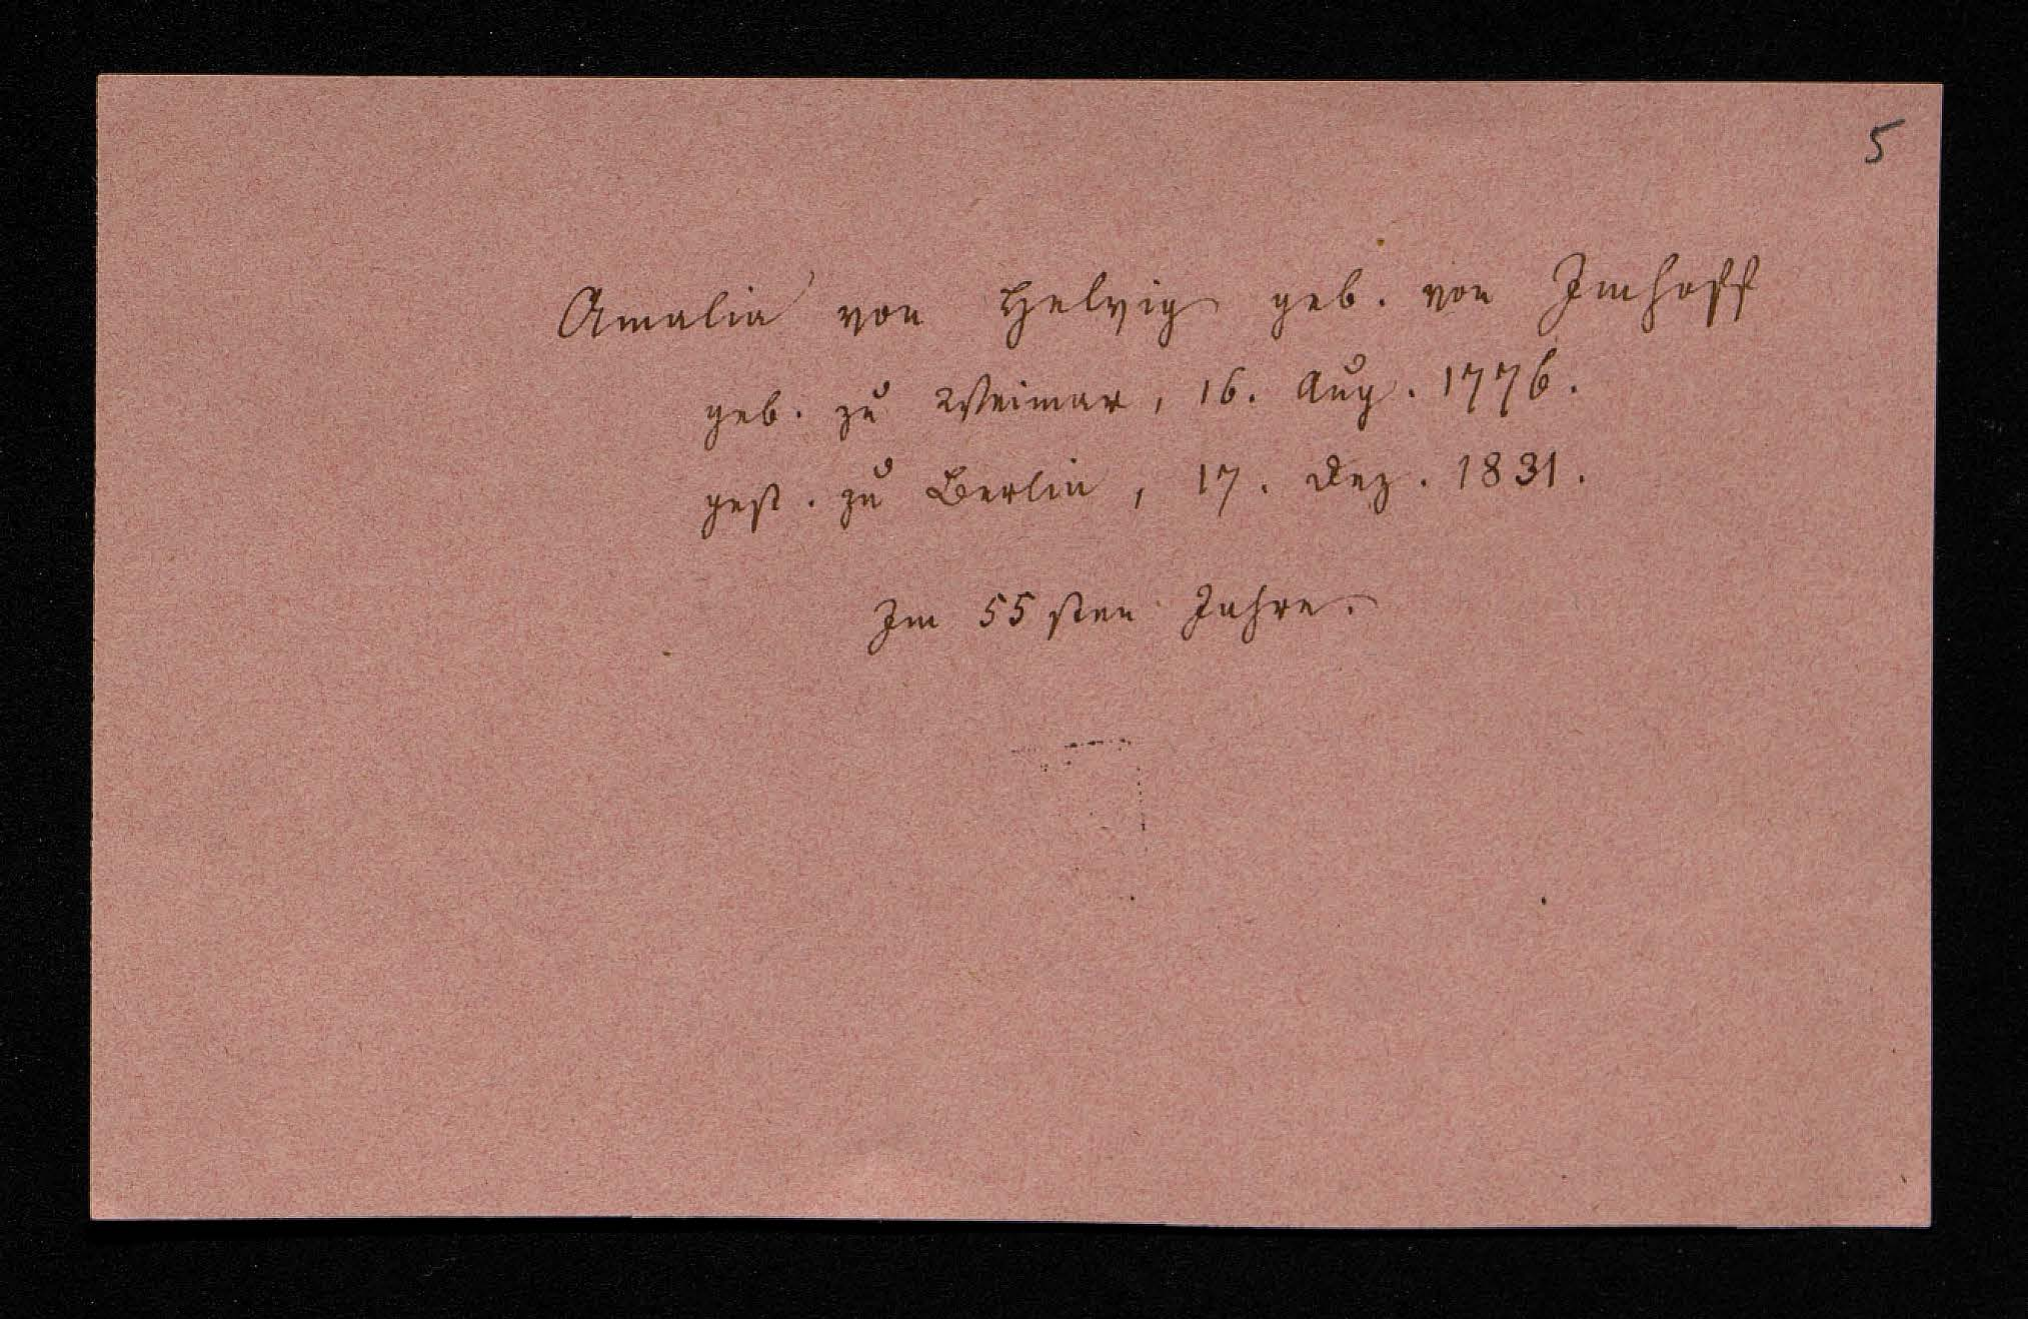 5
Amalia von Helvig geb. von Imhoff
geb. zu Weimar, 16. Aug. 1776.
gest. zu Berlin, 17. Dez. 1831.
Im 55sten Jahre.